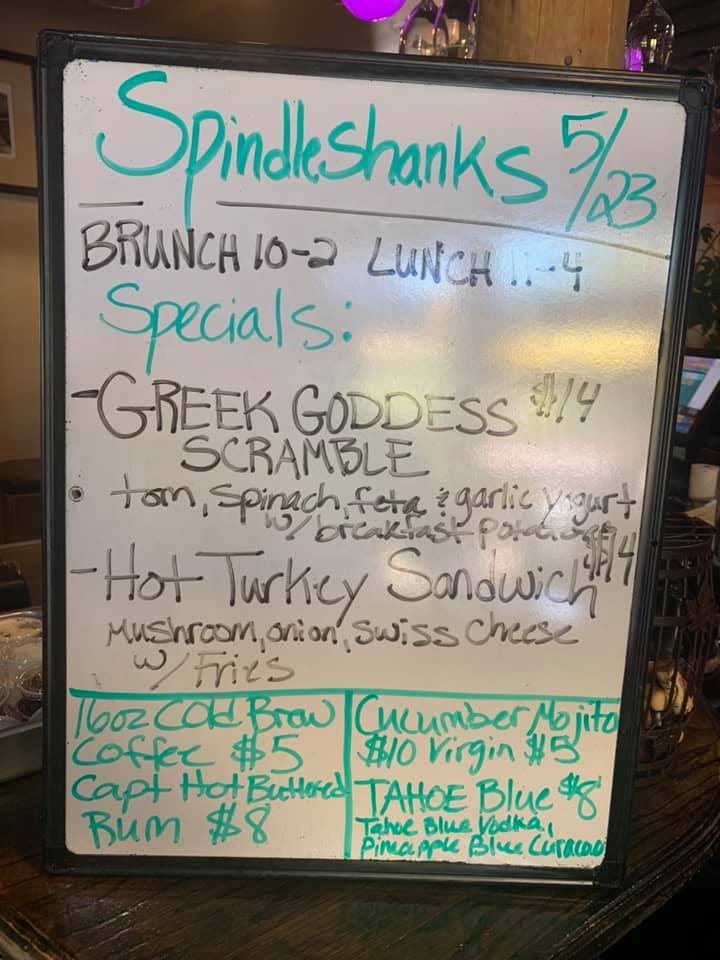 Spindleshanks 5/23
BRUNCH 10-2 LUNCH 11-4
Specials:
-GREEK GODDESS $14
SCRAMBLE
tom, Spinach, feta & garlic yogurt
w/breakfast potatoes
-Hot Turkey Sandwich $14
Mushroom, onion, Swiss Cheese
w/Fries
16oz Cold Brew
Coffee $5
Capt Hot Buttered
Rum $8
Cucumber Mojito
$10 Virgin $5
TAHOE Blue $8
Tahoe Blue Vodka,
Pineapple Blue Curacao